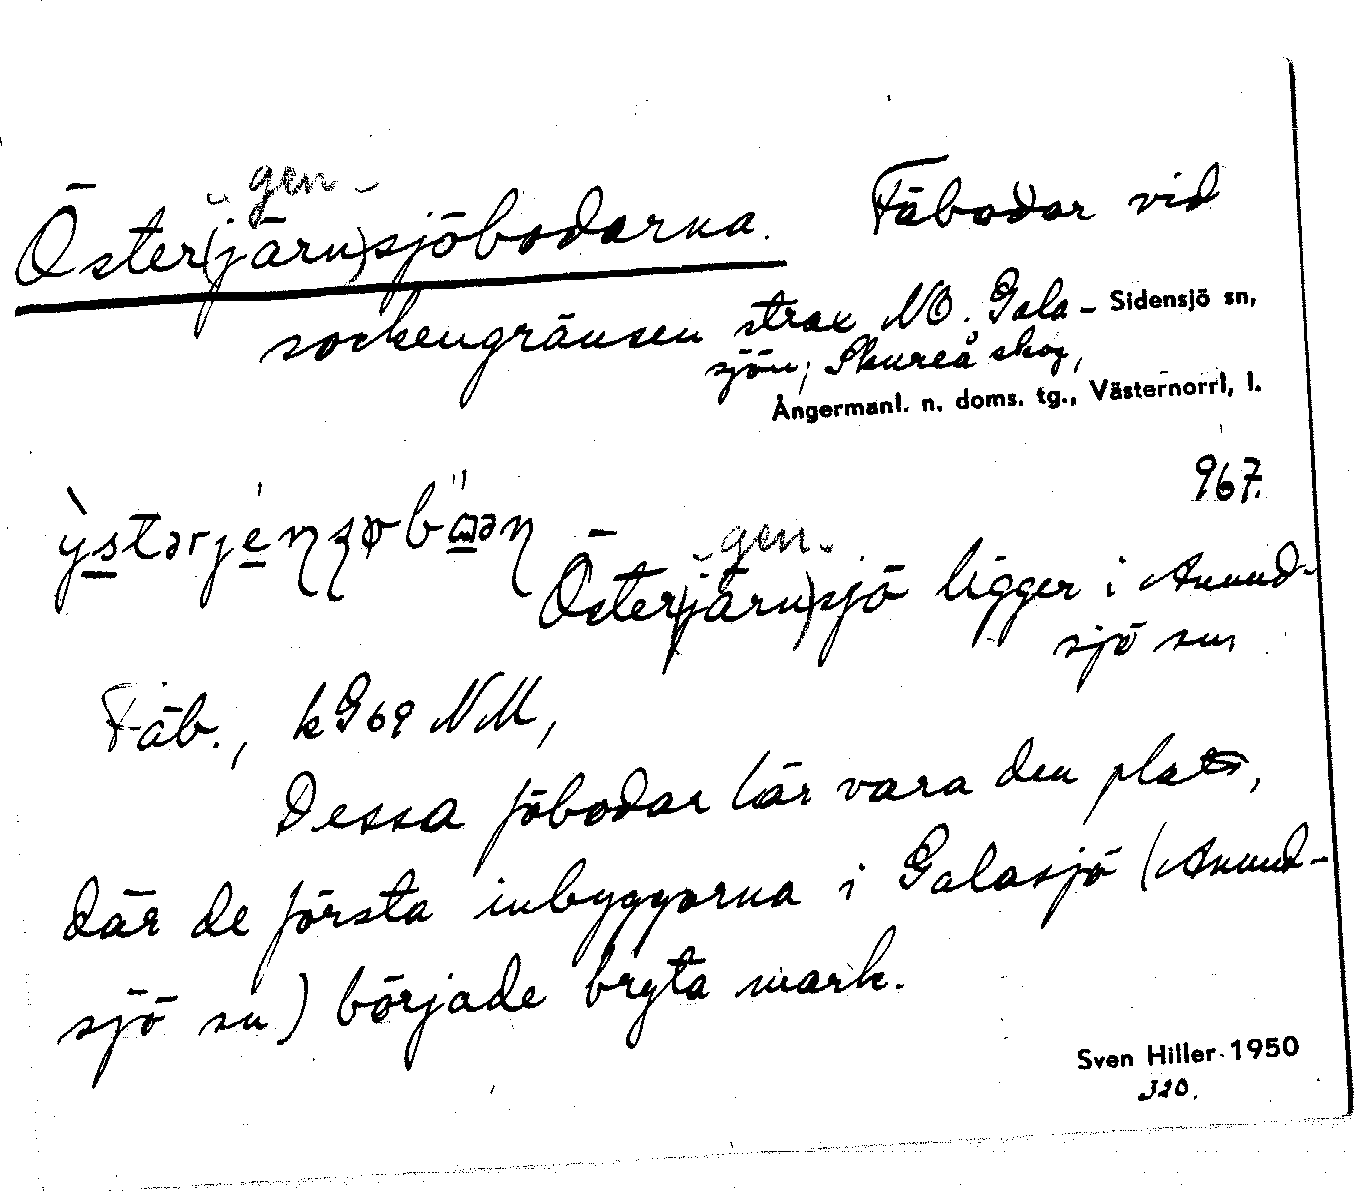 -gen-
Öster(järn)sjöbodarna. Fäbodar vid
sockengränsen strax NO. Gala- Sidensjö sn,
sjön; Skureå skog,
Ångermanl. n. doms. tg., Västernorrl, l.
967.
-gen-
Öster(järn)sjö ligger i Anund-
sjö sn,
Fäb., kG69 NM,
Dessa föbodar lär vara den plats,
där de första inbyggarna i Galasjö (Anund-
sjö sn) började bryta mark.
Sven Hiller 1950
320.